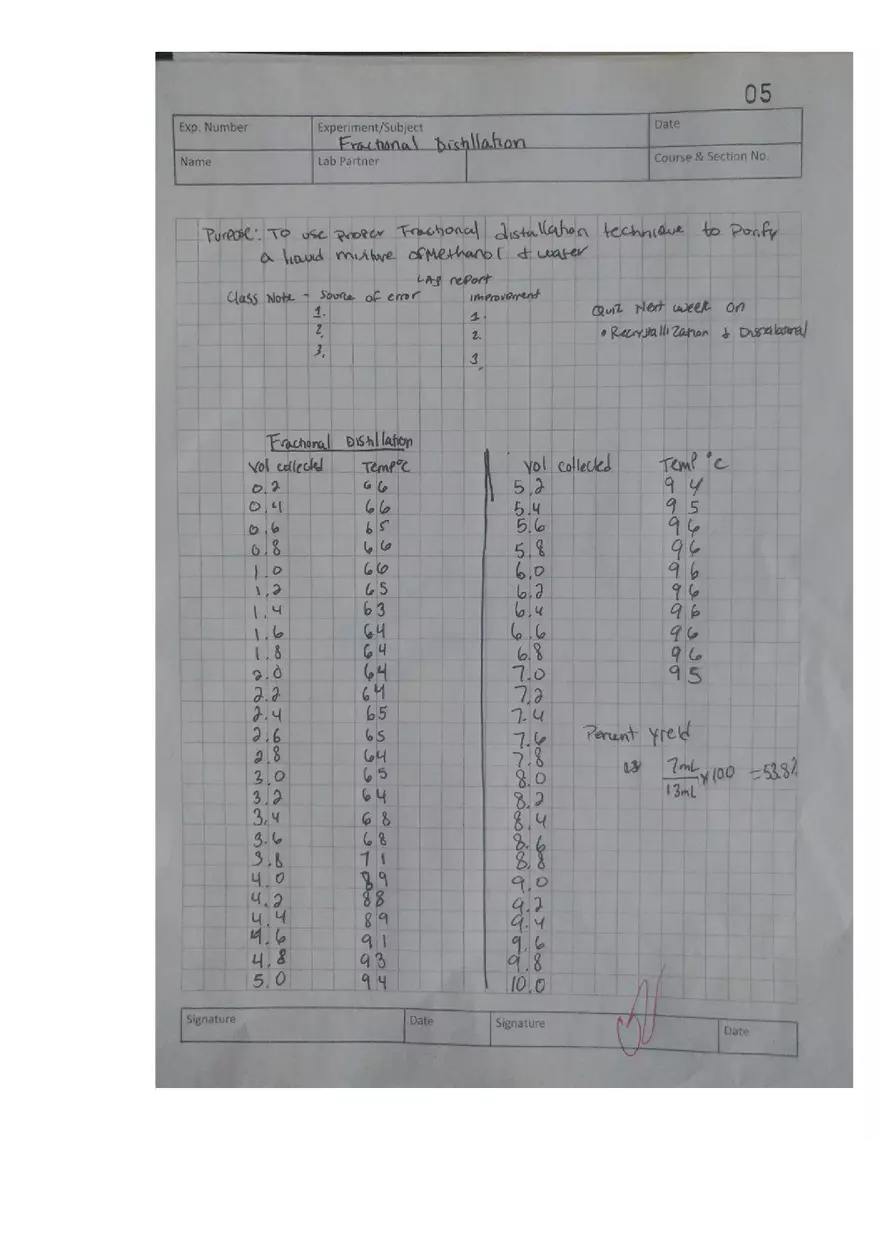 05
Exp. Number
Experiment/Subject
Date
Fractional Distillation
Name
Lab Partner
Course & Section No.
Purpose: To use proper Fractional distallation technique to Purify
a liquid mixture of Methanol & water
LAB report
Class Note - Source of error improvement
Quiz Next week on
1. 1.
• Recrystallization &
2. 2.
3. 3.
Fractional Distillation
Vol collected Temp°C Vol collected Temp °C
0.2 66 5.2 94
0.4 66 5.4 95
0.6 65 5.6 96
0.8 66 5.8 96
1.0 66 6.0 96
1.2 65 6.2 96
1.4 63 6.4 96
1.6 64 6.6 96
1.8 64 6.8 96
2.0 64 7.0 95
2.2 64 7.2
2.4 65 7.4
2.6 65 7.6 Percent yield
2.8 64 7.8 7mL
3.0 65 8.0 x 100 = 53.8%
3.2 64 8.2 13mL
3.4 68 8.4
3.6 68 8.6
3.8 71 8.8
4.0 89 9.0
4.2 88 9.2
4.4 89 9.4
4.6 91 9.6
4.8 93 9.8
5.0 94 10.0
Signature Date Signature Date